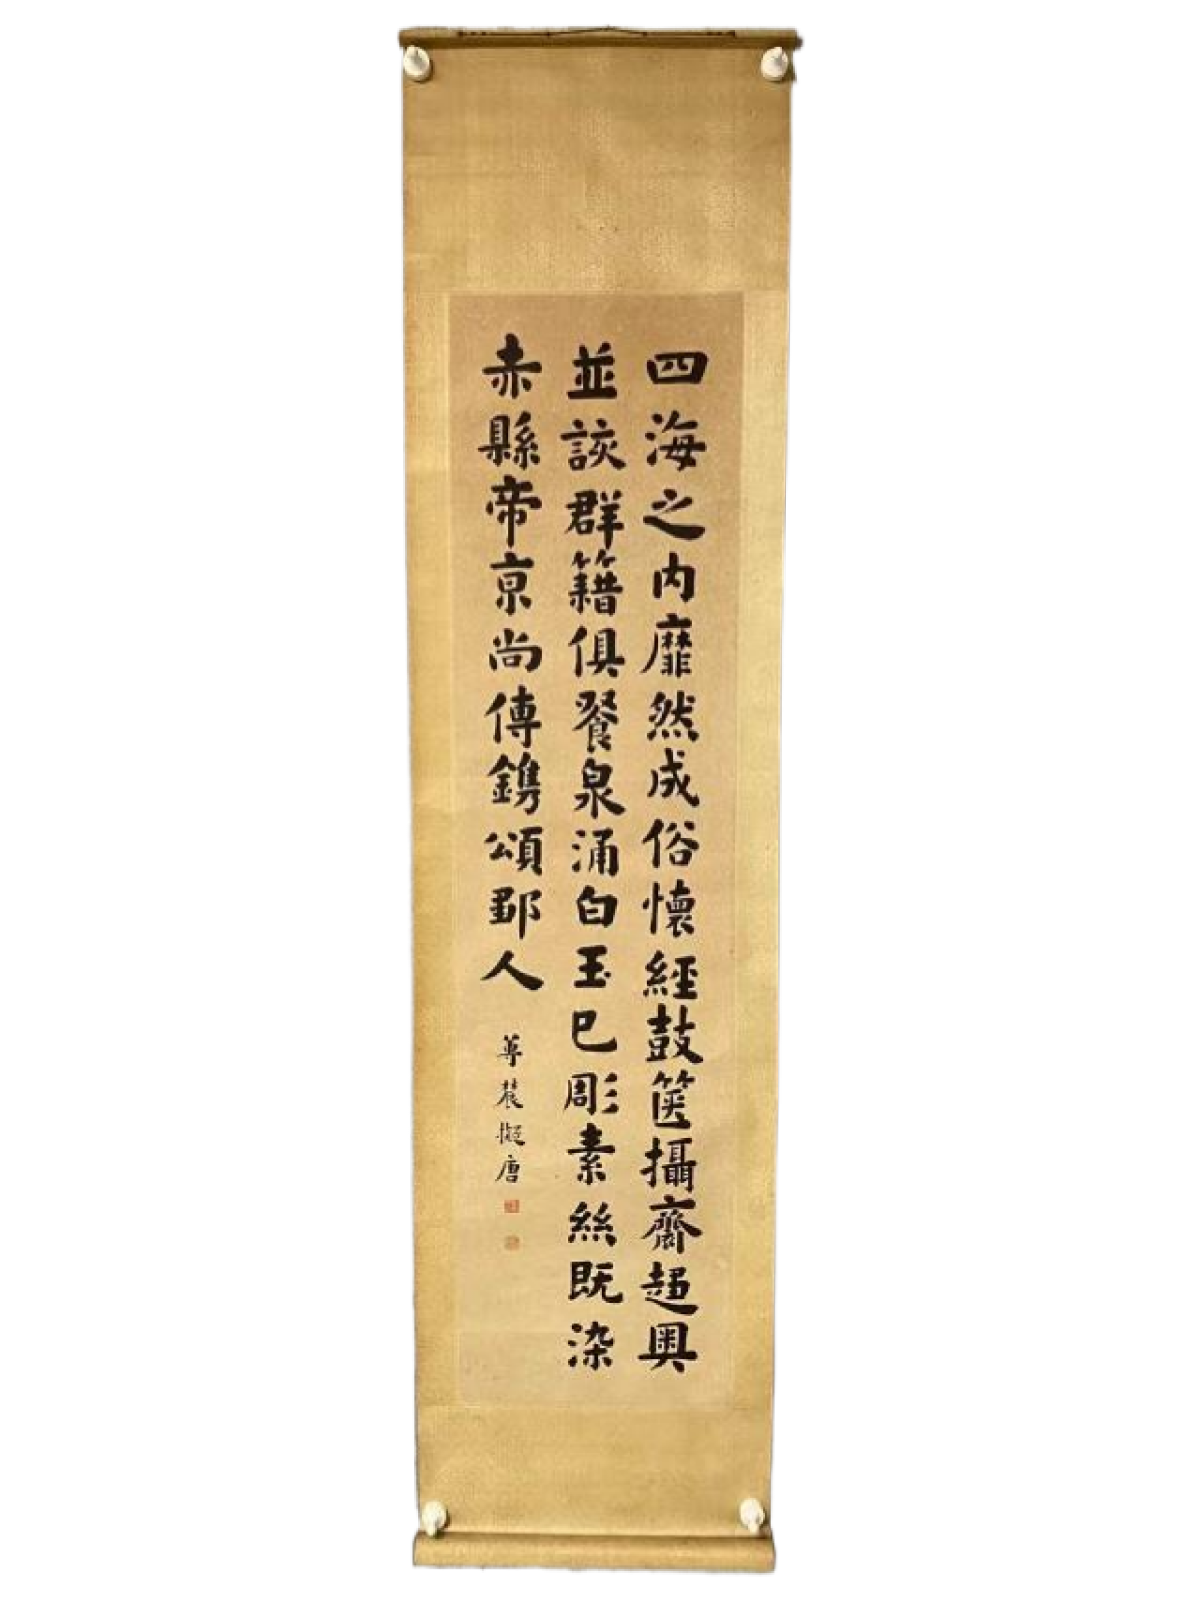 四海之内靡然成俗懷經鼓篋攝齋趨奧
並該群籍俱餐泉涌白玉已彫素絲既染
赤縣帝京尚傳鎸頌鄒人
蓴農擬唐